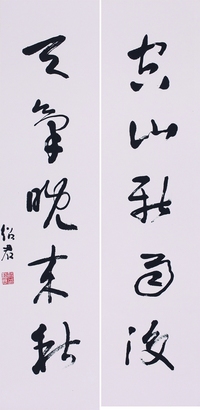 空山新雨後
天氣晚来秋
绍君